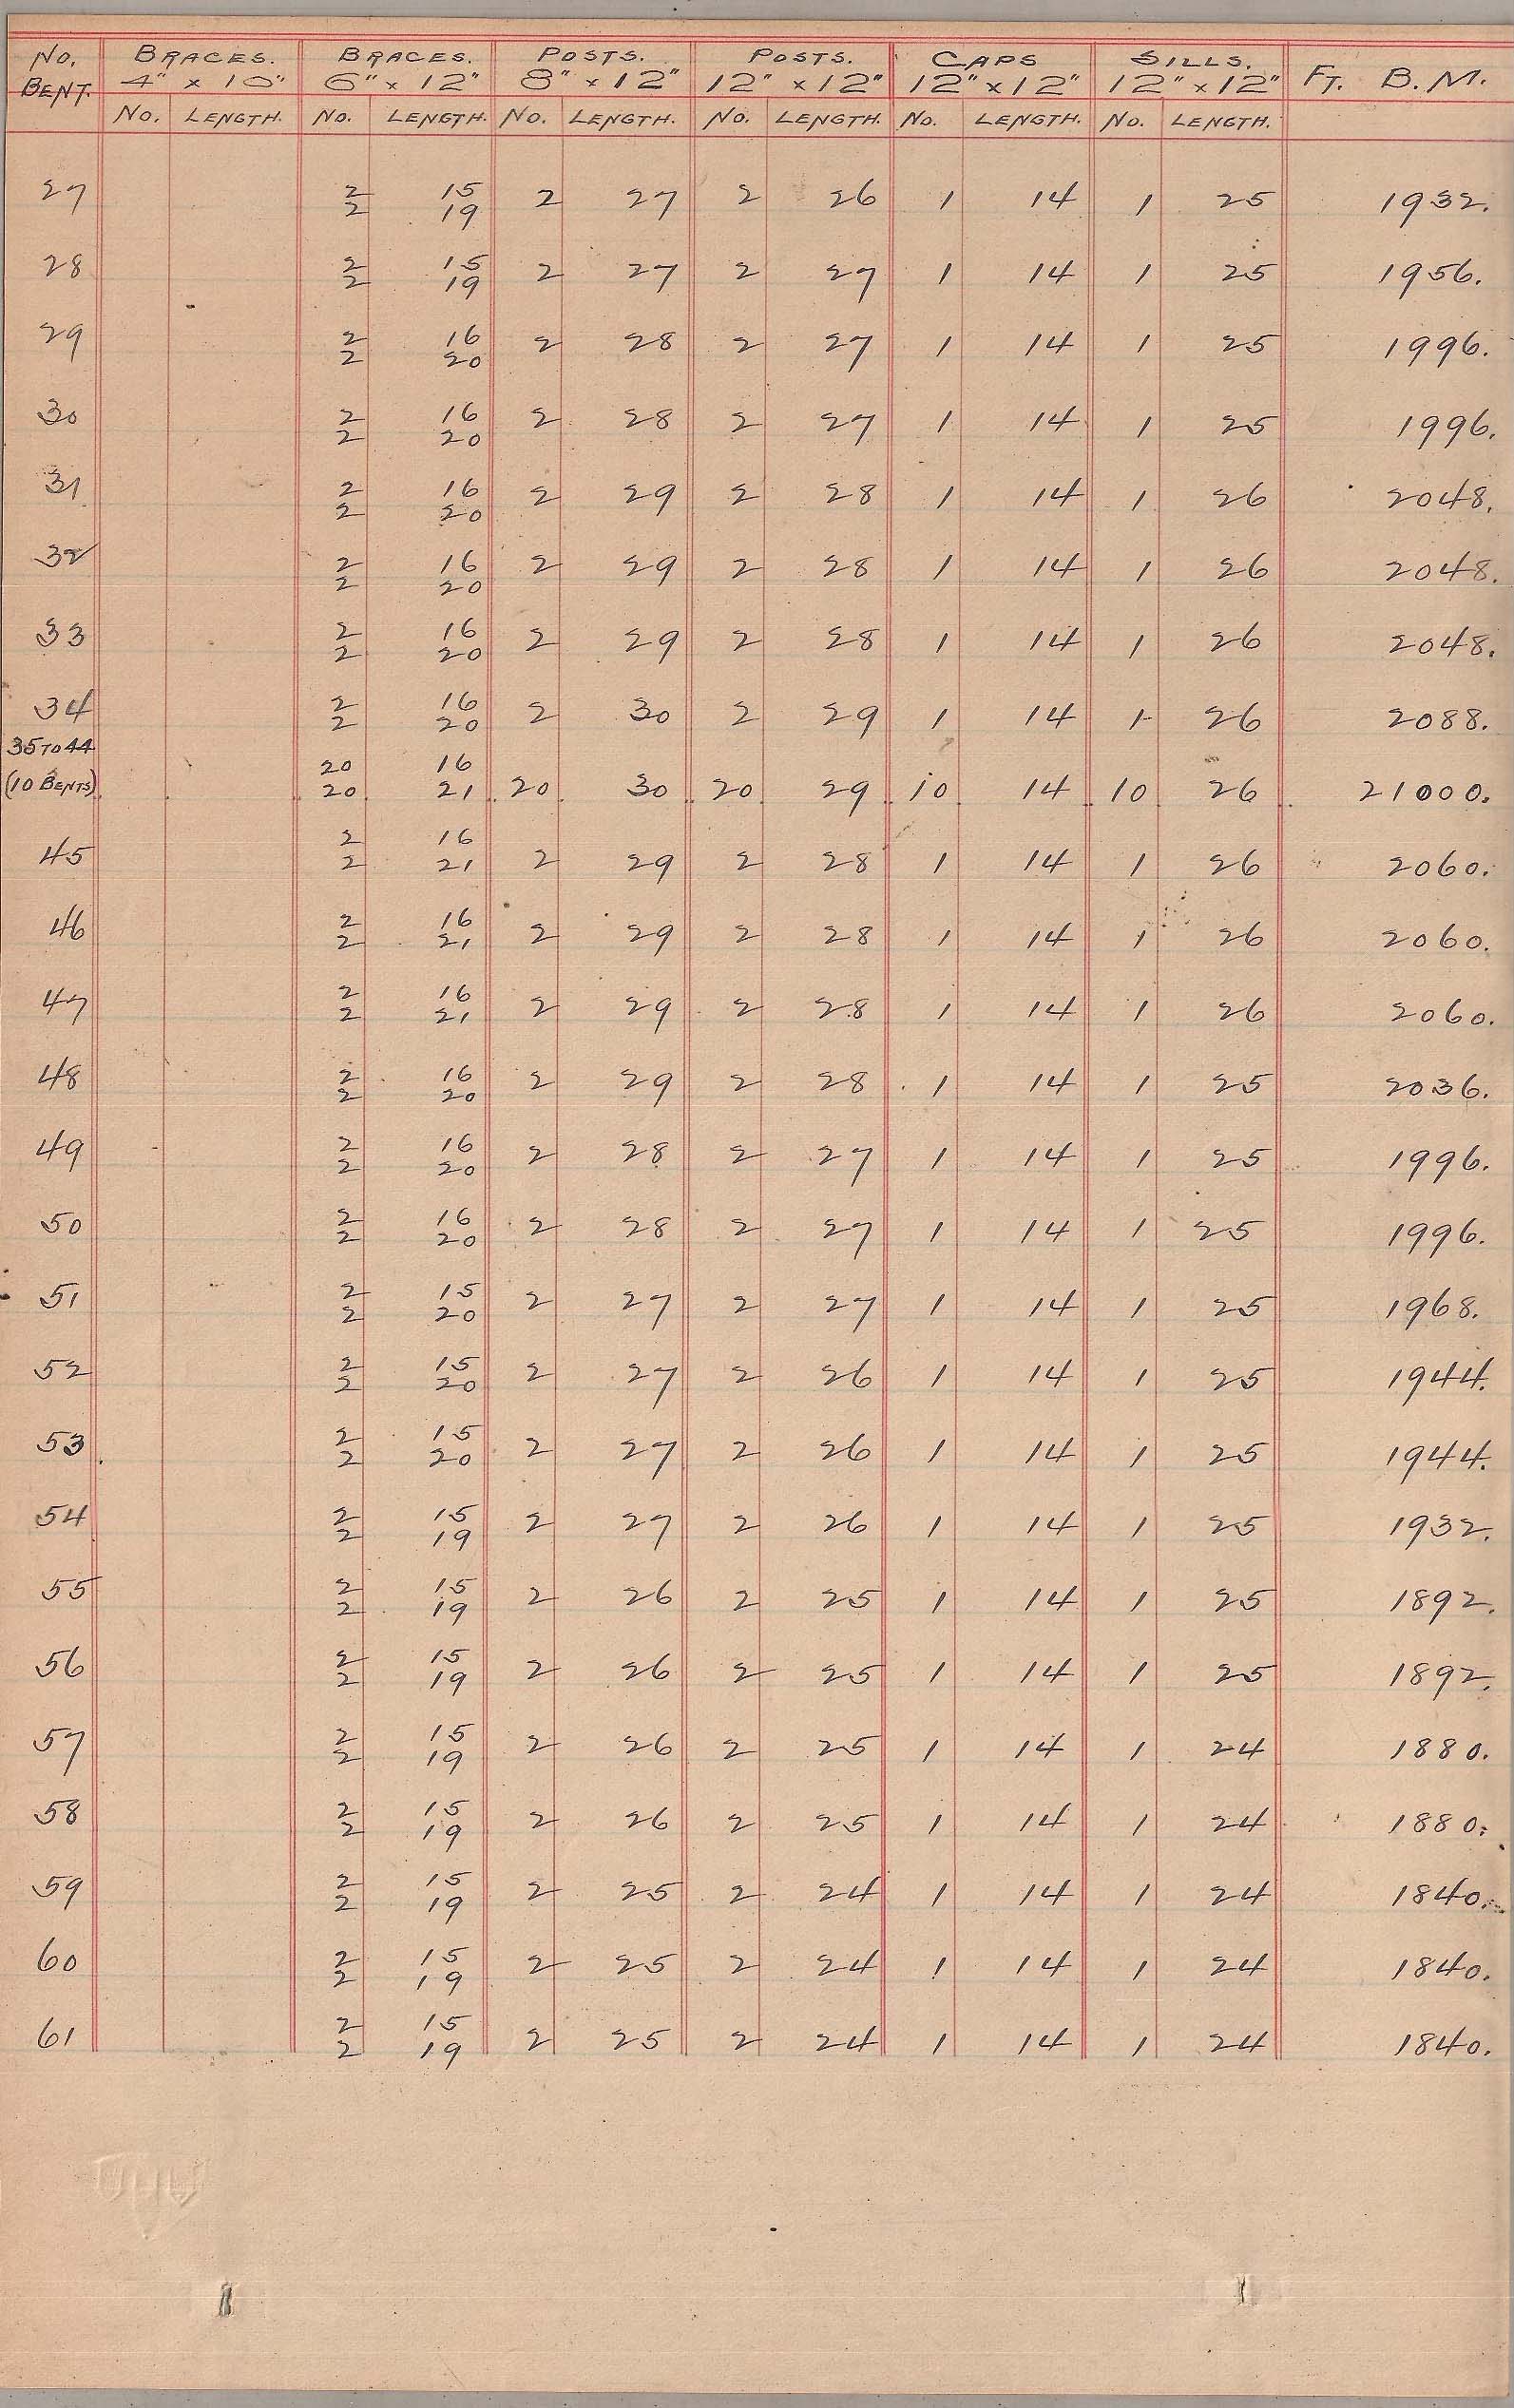 No. BRACES. BRACES. POSTS. POSTS. CAPS SILLS. FT. B.M.
BENT. 4" x 10" 6" x 12" 8" x 12" 12" x 12" 12" x 12" 12" x 12"
No. LENGTH. No. LENGTH. No. LENGTH. No. LENGTH. No. LENGTH. No. LENGTH.
2 15
27 2 19 2 27 2 26 1 14 1 25 1932.
2 15
28 2 19 2 27 2 27 1 14 1 25 1956.
2 16
29 2 20 2 28 2 27 1 14 1 25 1996.
2 16
30 2 20 2 28 2 27 1 14 1 25 1996.
2 16
31 2 20 2 29 2 28 1 14 1 26 2048.
2 16
32 2 20 2 29 2 28 1 14 1 26 2048.
2 16
33 2 20 2 29 2 28 1 14 1 26 2048.
2 16
34 2 20 2 30 2 29 1 14 1 26 2088.
35 TO 44 20 16
(10 BENTS) 20 21 20 30 20 29 10 14 10 26 21000.
2 16
45 2 21 2 29 2 28 1 14 1 26 2060.
2 16
46 2 21 2 29 2 28 1 14 1 26 2060.
2 16
47 2 21 2 29 2 28 1 14 1 26 2060.
2 16
48 2 20 2 29 2 28 1 14 1 25 2036.
2 16
49 2 20 2 28 2 27 1 14 1 25 1996.
2 16
50 2 20 2 28 2 27 1 14 1 25 1996.
2 15
51 2 20 2 27 2 27 1 14 1 25 1968.
2 15
52 2 20 2 27 2 26 1 14 1 25 1944.
2 15
53 2 20 2 27 2 26 1 14 1 25 1944.
2 15
54 2 19 2 27 2 26 1 14 1 25 1932.
2 15
55 2 19 2 26 2 25 1 14 1 25 1892.
2 15
56 2 19 2 26 2 25 1 14 1 25 1892.
2 15
57 2 19 2 26 2 25 1 14 1 24 1880.
2 15
58 2 19 2 26 2 25 1 14 1 24 1880.
2 15
59 2 19 2 25 2 24 1 14 1 24 1840.
2 15
60 2 19 2 25 2 24 1 14 1 24 1840.
2 15
61 2 19 2 25 2 24 1 14 1 24 1840.